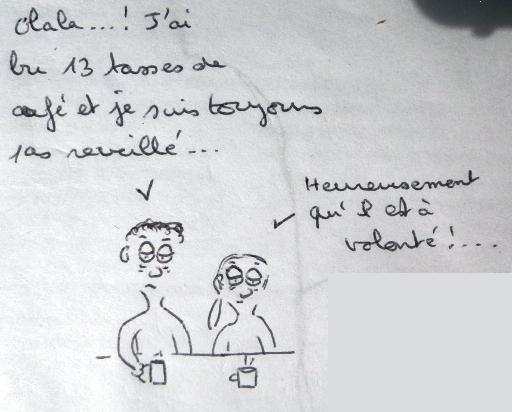 Olala...! J'ai
bu 13 tasses de
café et je suis toujours
pas reveillé...
Heureusement
qu'il est à
volonté!...